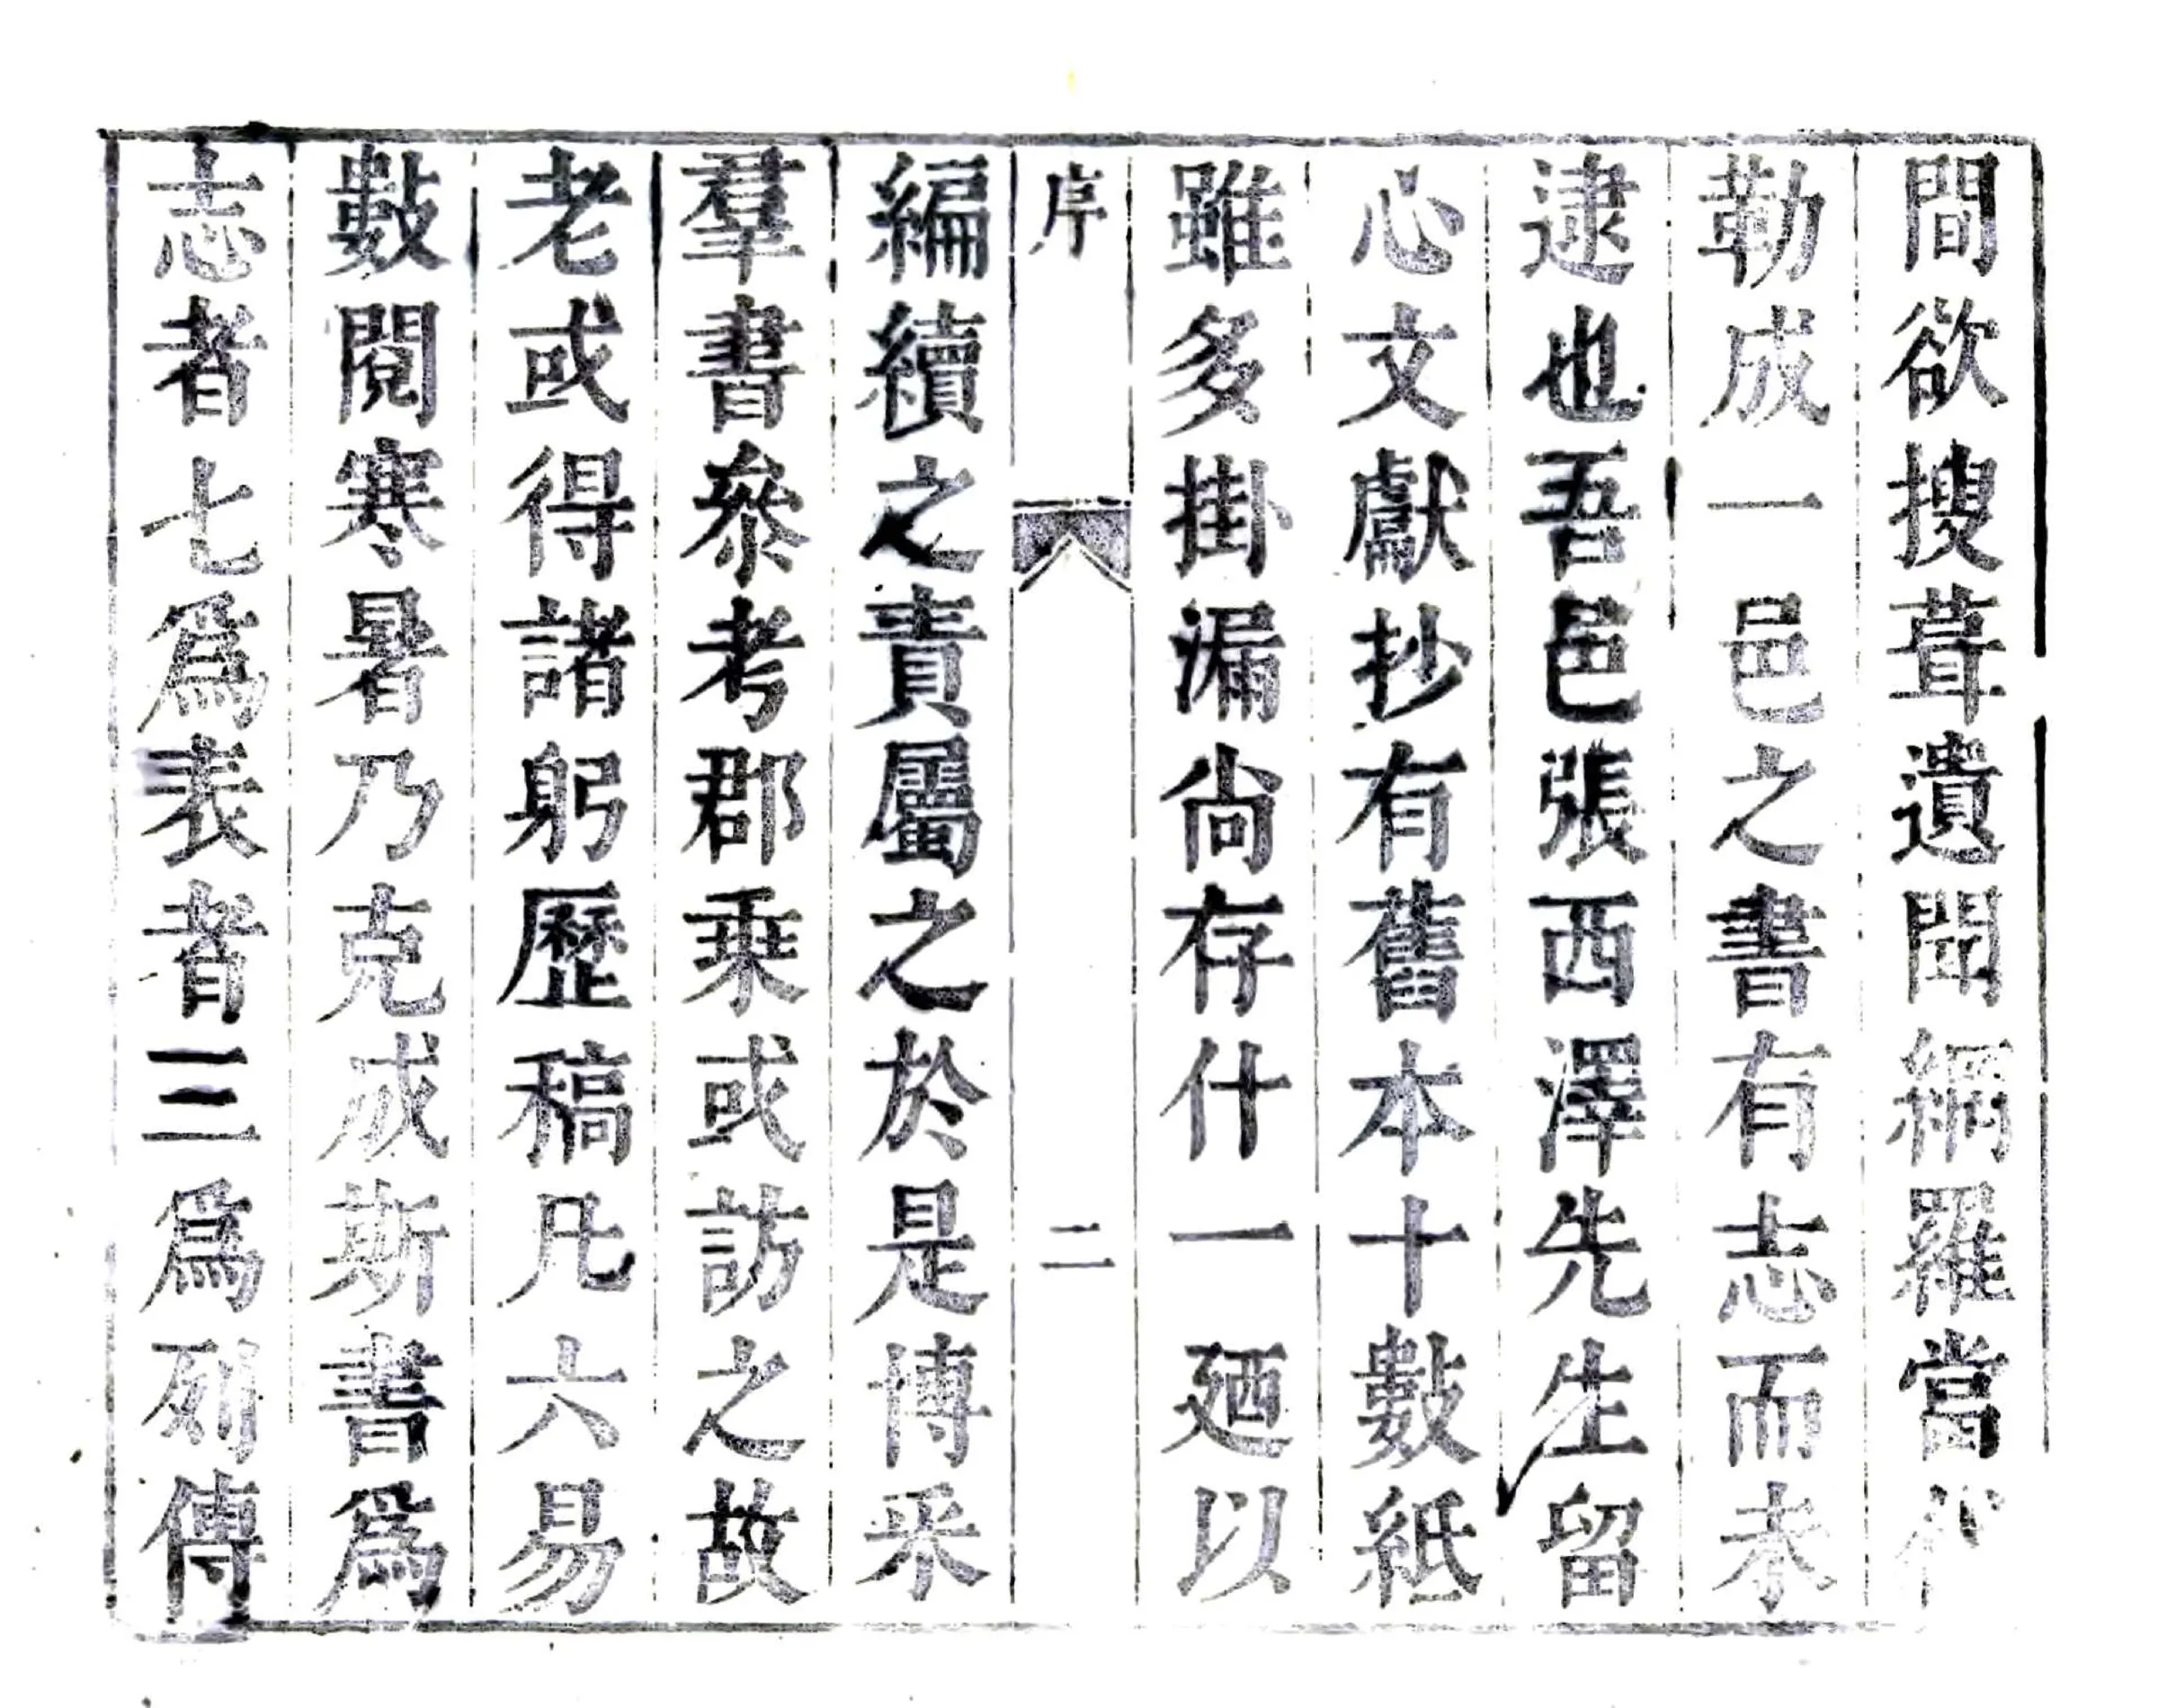 間欲搜葺遺聞網羅當代
勒成一邑之書有志而未
逮也吾邑張西澤先生留
心文獻抄有舊本十數紙
雖多掛漏尙存什一廼以
序
二
編續之責屬之於是博采
羣書叅考郡乗或訪之故
老或得諸躬歷稿凡六易
數閱寒暑乃克成斯書爲
志者七爲表者三爲列傳